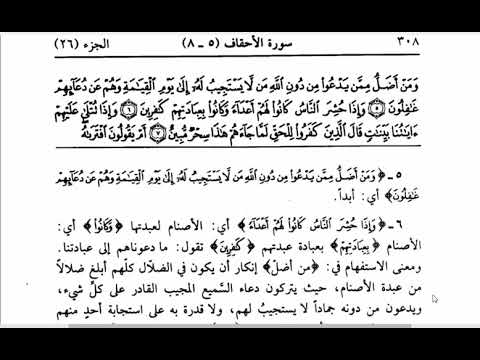 ٣٠٨ سورة الأحقاف (٥ - ٨) الجزء (٢٦)
وَمَنْ أَضَلُّ مِمَّن يَدْعُوا۟ مِن دُونِ ٱللَّهِ مَن لَّا يَسْتَجِيبُ لَهُۥٓ إِلَىٰ يَوْمِ ٱلْقِيَٰمَةِ وَهُمْ عَن دُعَآئِهِمْ
غَٰفِلُونَ ﴿٥﴾ وَإِذَا حُشِرَ ٱلنَّاسُ كَانُوا۟ لَهُمْ أَعْدَآءً وَكَانُوا۟ بِعِبَادَتِهِمْ كَٰفِرِينَ ﴿٦﴾ وَإِذَا تُتْلَىٰ عَلَيْهِمْ
ءَايَٰتُنَا بَيِّنَٰتٍ قَالَ ٱلَّذِينَ كَفَرُوا۟ لِلْحَقِّ لَمَّا جَآءَهُمْ هَٰذَا سِحْرٌ مُّبِينٌ ﴿٧﴾ أَمْ يَقُولُونَ ٱفْتَرَىٰهُ
٥ - ﴿وَمَنْ أَضَلُّ مِمَّن يَدْعُوا۟ مِن دُونِ ٱللَّهِ مَن لَّا يَسْتَجِيبُ لَهُۥٓ إِلَىٰ يَوْمِ ٱلْقِيَٰمَةِ وَهُمْ عَن دُعَآئِهِمْ
غَٰفِلُونَ﴾ أي: أبداً.
٦ - ﴿وَإِذَا حُشِرَ ٱلنَّاسُ كَانُوا۟ لَهُمْ أَعْدَآءً﴾ أي: الأصنام لعبدتها ﴿وَكَانُوا۟﴾ أي:
الأصنام ﴿بِعِبَادَتِهِمْ﴾ بعبادة عبدتهم ﴿كَٰفِرِينَ﴾ تقول: ما دعوناهم إلى عبادتنا.
ومعنى الاستفهام في: ﴿من أضلّ﴾ إنكار أن يكون في الضلّال كلّهم أبلغ ضلالاً
من عبدة الأصنام، حيث يتركون دعاء السَّميع المجيب القادر على كلّ شيء،
ويدعون من دونه جماداً لا يستجيبُ لهم، ولا قدرة به على استجابة أحدٍ منهم